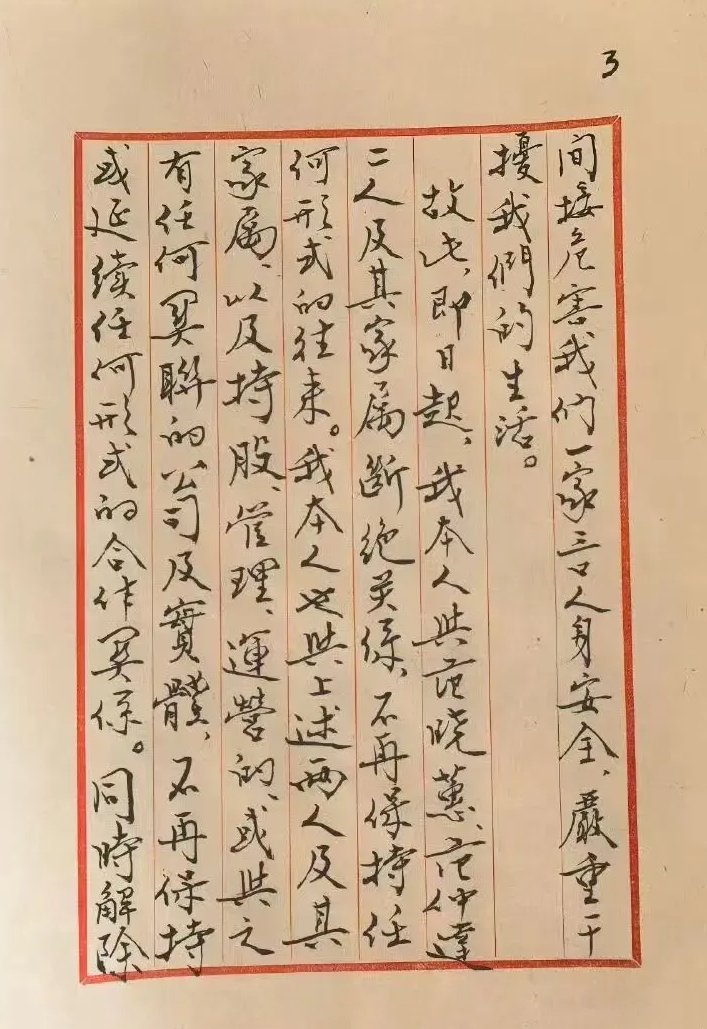 3
间接危害我们一家三口人身安全、嚴重干
擾我們的生活。
故此，即日起，我本人與范晓蕙、范仲達
二人及其家属断绝关係，不再保持任
何形式的往来。我本人也與上述两人及其
家属、以及持股、管理、運營的、或與之
有任何関聯的公司及實體、不再保持
或延續任何形式的合作関係。同時解除